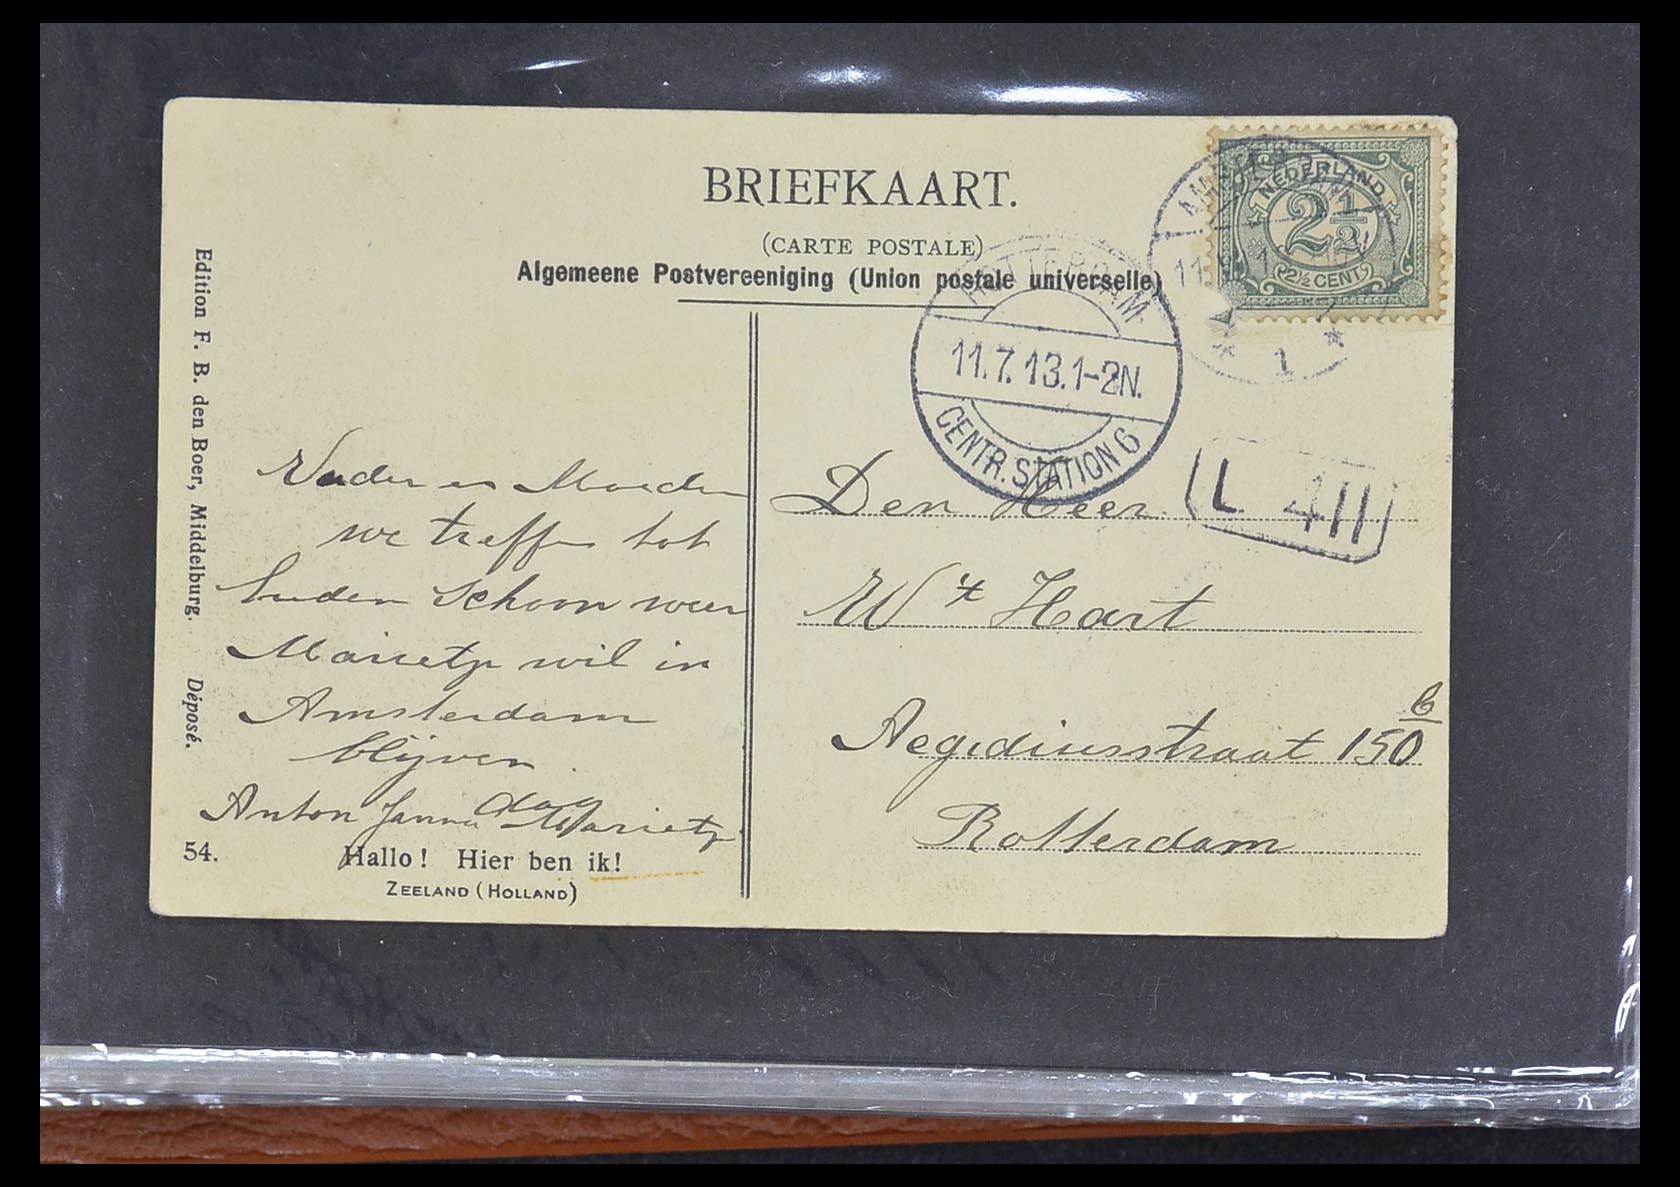 BRIEFKAART.
(CARTE POSTALE)
Algemeene Postvereeniging (Union postale universelle)
NEDERLAND
2½
2½ CENT
AMSTERDAM
1
ROTTERDAM
11.7.13.1-2N.
CENTR. STATION 6
L 411
Edition F. B. den Boer, Middelburg. Déposé.
Vader en Moeder
we treffen tot
heden schoon weer
Marietje wil in
Amsterdam
blijven
dag
Anton Janna Marietje
54.
Hallo! Hier ben ik!
ZEELAND (HOLLAND)
Den Heer
W 't Hart
Aegidiusstraat 150 b
Rotterdam